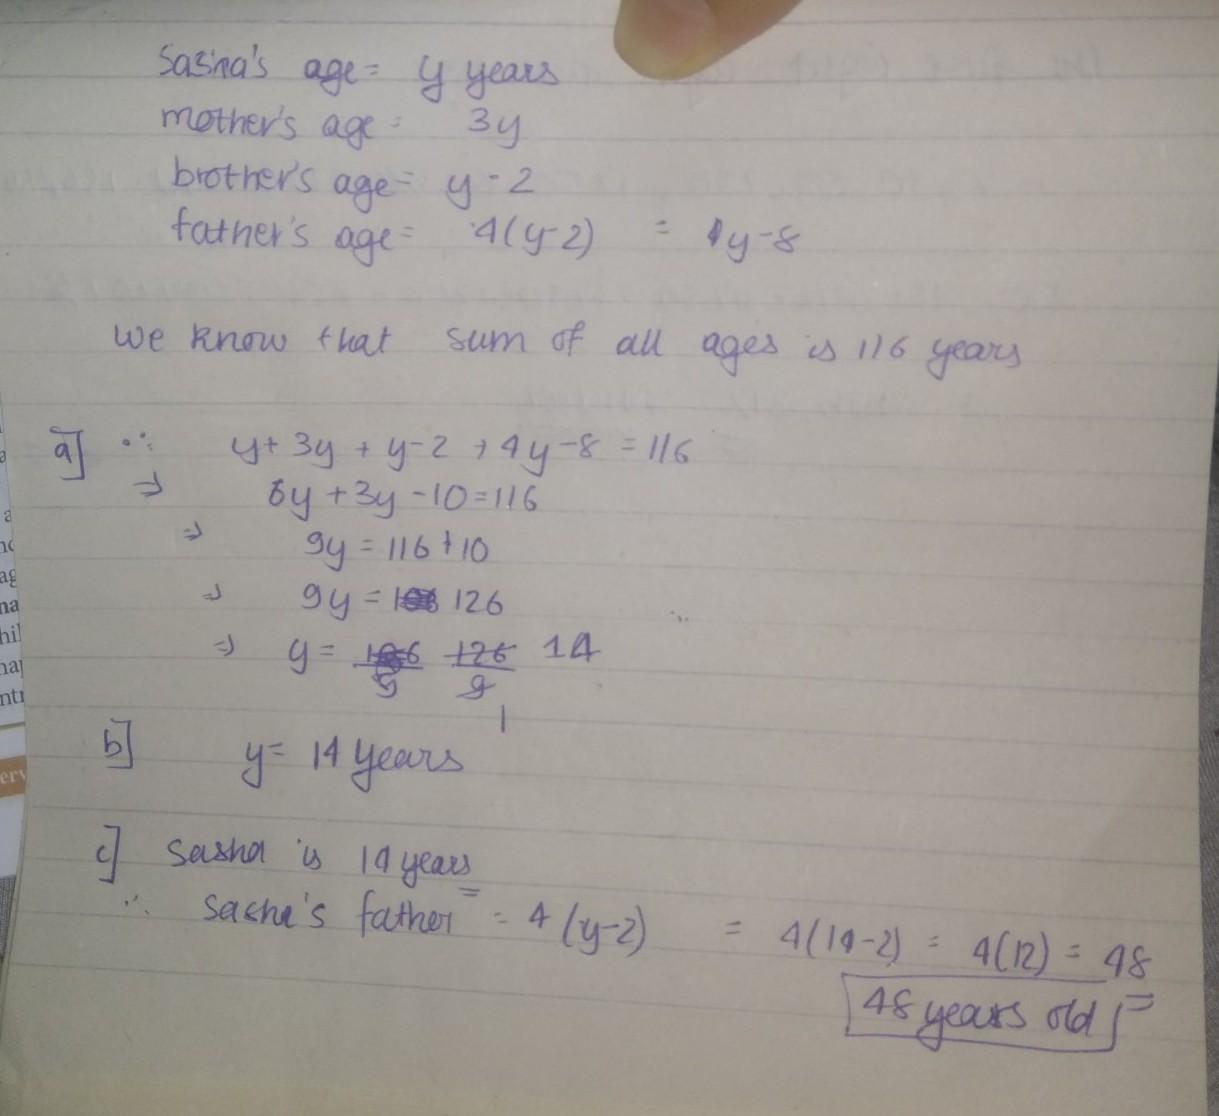 Sasha's age = y years
mother's age = 3y
brother's age = y - 2
father's age = 4(y-2) = 4y-8
we know that sum of all ages is 116 years
a] ∴ y + 3y + y-2 + 4y-8 = 116
⇒ 6y + 3y - 10 = 116
⇒ 9y = 116 + 10
⇒ 9y = 126
⇒ y = 126/9 14
1
b] y = 14 years
c] Sasha is 14 years
∴ Sasha's father = 4(y-2) = 4(14-2) = 4(12) = 48
48 years old